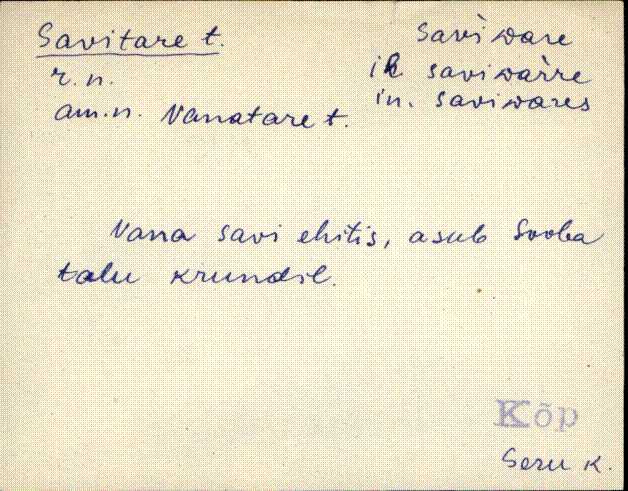 Savitare t.
r.n.
am.n. Vanatare t.
savìware
ik saviwàrre
in. saviwares
Vana savi ehitis, asub Sooba
talu krundil.
Kõp
Seru K.